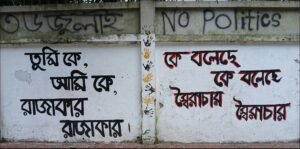 No Politics
তুমি কে,
আমি কে,
রাজাকার
রাজাকার।
কে বলেছে
কে বলেছে
স্বৈরাচার
স্বৈরাচার